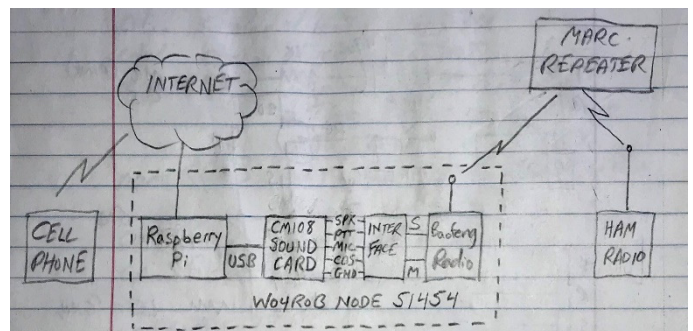 MARC
REPEATER
INTERNET
CELL
PHONE
Raspberry
Pi
USB
CM108
SOUND
CARD
SPK
PTT
MIC
COS
GND
INTER
FACE
S
M
Baofeng
Radio
HAM
RADIO
WO4ROB NODE 51454